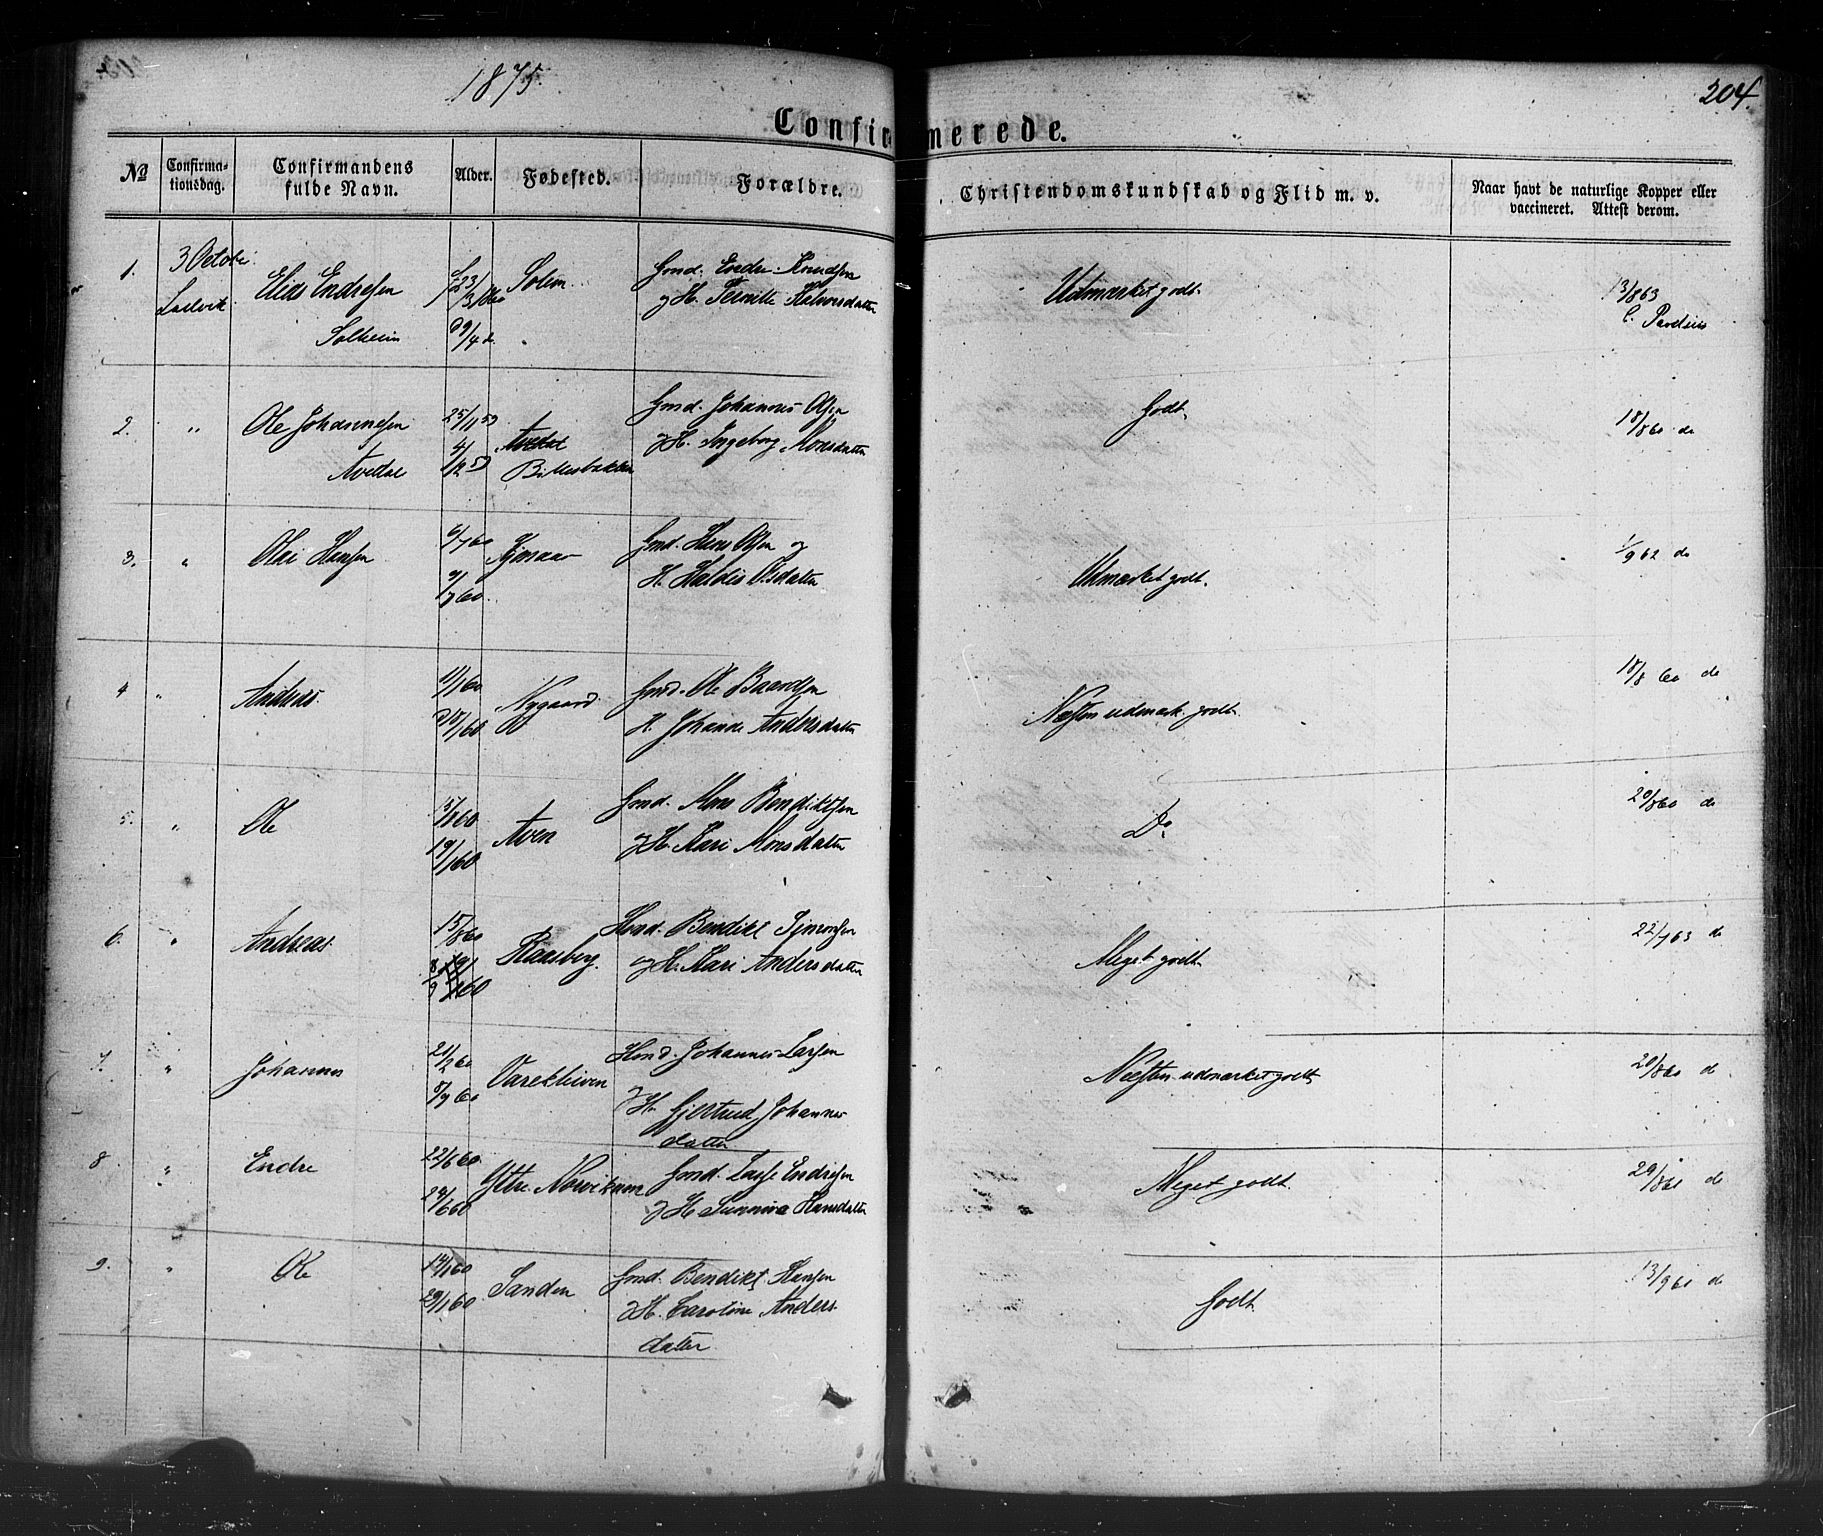 1875.
204.
Confirmerede.
No
Confirmationsdag.
Confirmandens fulde Navn.
Alder.
Fødested.
Forældre.
Christendomskundskab og Flid m. v.
Naar havt de naturlige Kopper eller vaccineret. Attest derom.
1.
3 Octobr.
Elias Endresen
Solheim
23/3
9/4
Solem
Gmd. Endre Knudsen
og H. Pernille Halvorsdatter
Udmærket godt.
13/863
2.
"
Ole Johannesen
Avedal
25/11 59
4/12 59
Gmd. Johannes Olsen
og H. Ingeborg Monsdatter
Godt.
18/860 do
3.
"
Hansen
6/7 60
9/7 60.
Gmd. Hans Olsen og
H. Olsdatter
Udmærket godt.
1/9 62 do
4
"
Anders.
11/1 60
/1 60
Nygaard
Gmd. Ole Baardsen
H. Johanne Andersdatter
Næsten udmærk. godt.
18/8 60 do
5.
"
Ole
5/1 60
19/1 60
Aven
Gmd. Mons Bendiktsen
og H. Kari Monsdatter
Do
20/860 do
6.
"
Andreas.
15/8 60
Raasberg.
Hmd. Bendikt Simonsen
og H. Kari Andersdatter
Meget godt.
22/7 63 do
7.
"
Johannes
21/2 60
Hmd. Johannes Larsen
og H. Gjertrud Johannes
datter
Næsten udmærket godt
20/860 do
8.
"
Endre
22/6 60
24/6 60
Ytre
Gmd. Lasse Endresen
og H. Sunniva Hansdatter
Meget godt.
29/861 do
9.
"
Ole
14/1 60
29/1 60
Sanden
Gmd. Bendikt Hansen
og H. Caroline Anders
datter
Godt.
13/9 61 do